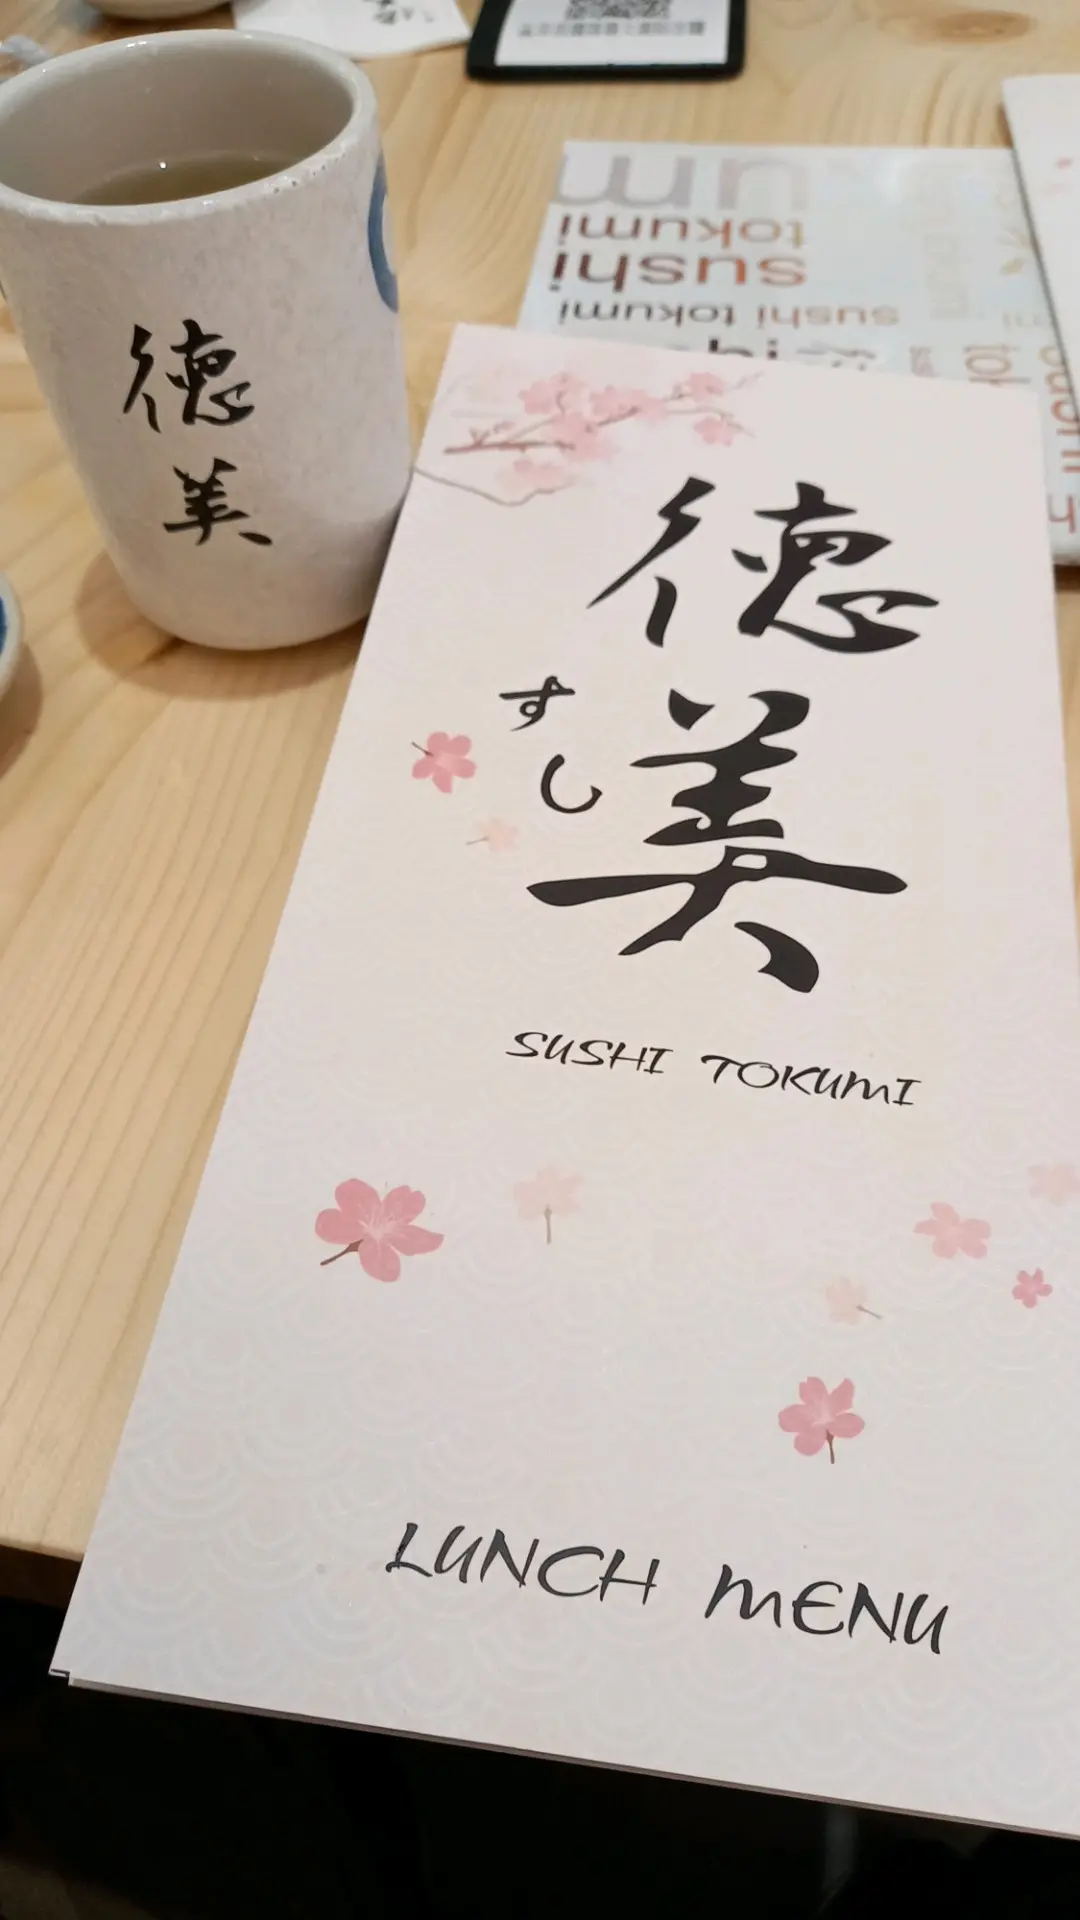 徳
美
tokumi
sushi
sushi tokumi
徳
美
すし
SUSHI TOKUMI
LUNCH MENU